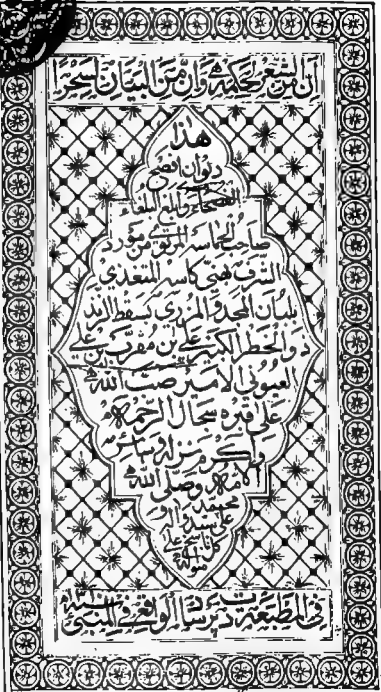 ان من الشعر لحكمة وان من البيان لسحرا
هذا
ديوان افصح
الفصحاء وابلغ البلغاء
صاحب الحماسه المرتوى من مورد
الشرف بهنى كاسه المتغذى
بلبان المجد المزرى بسقط الزند
ذو الخطر الكبير على بن مقرب بن على
العيونى الامير صب الله
على قبره سجال الرحمه
واكرم منزله وسائر
الامه وصلى الله
محمد
على سيدنا
فى المطبعة